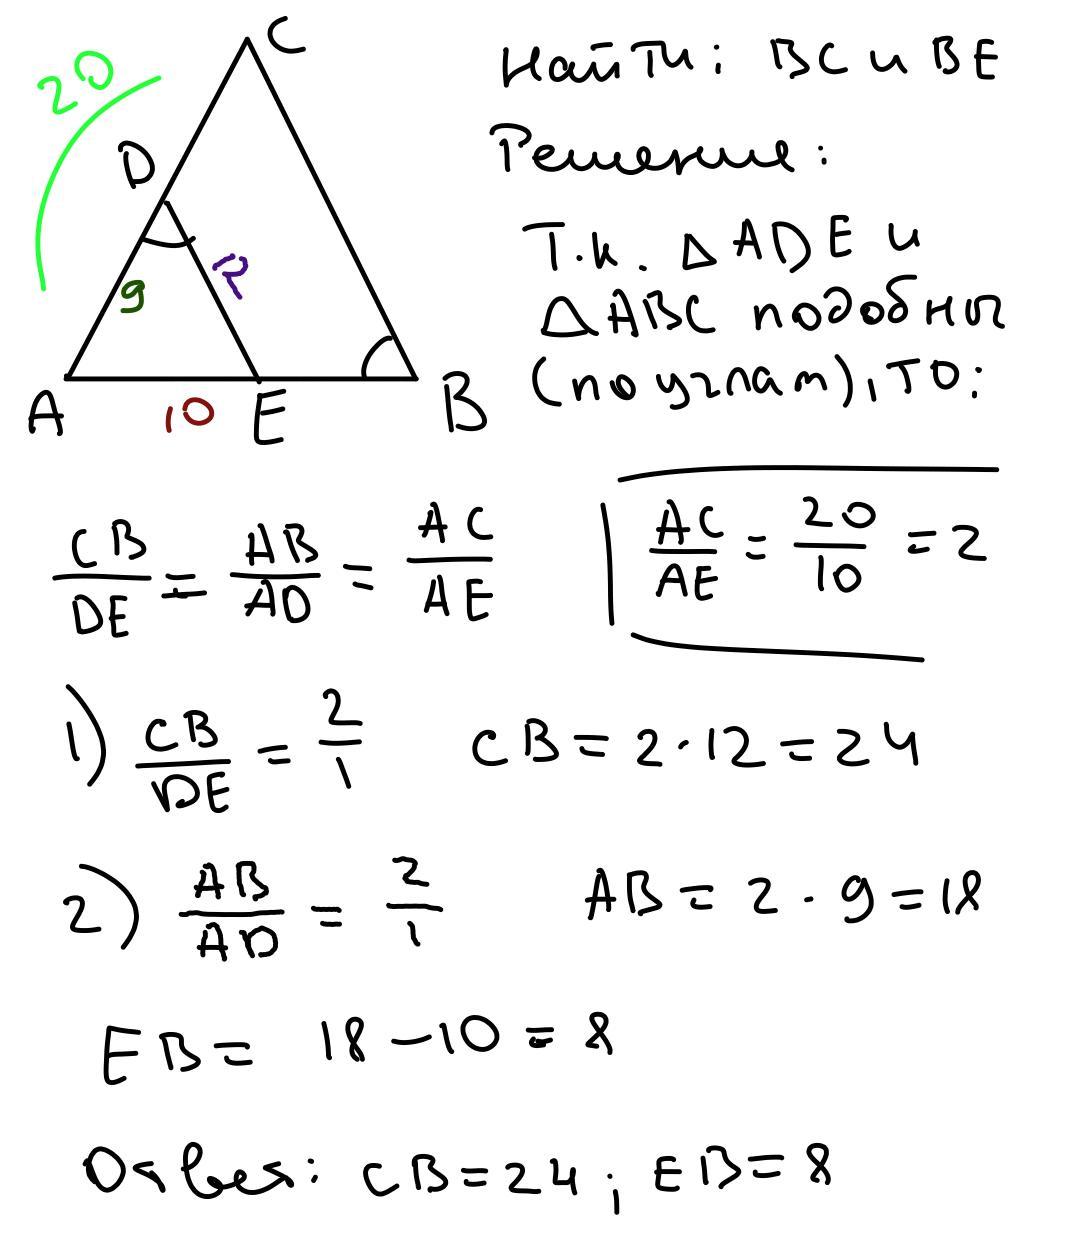 C
20
D
9
12
A
10
E
B
Найти: BC и BE
Решение:
Т.к. △ADE и
△ABC подобны
(по углам), то:
CB/DE = AB/AD = AC/AE
AC/AE = 20/10 = 2
1) CB/DE = 2/1 CB = 2·12 = 24
2) AB/AD = 2/1 AB = 2·9 = 18
EB = 18 - 10 = 8
Ответ: CB = 24; EB = 8